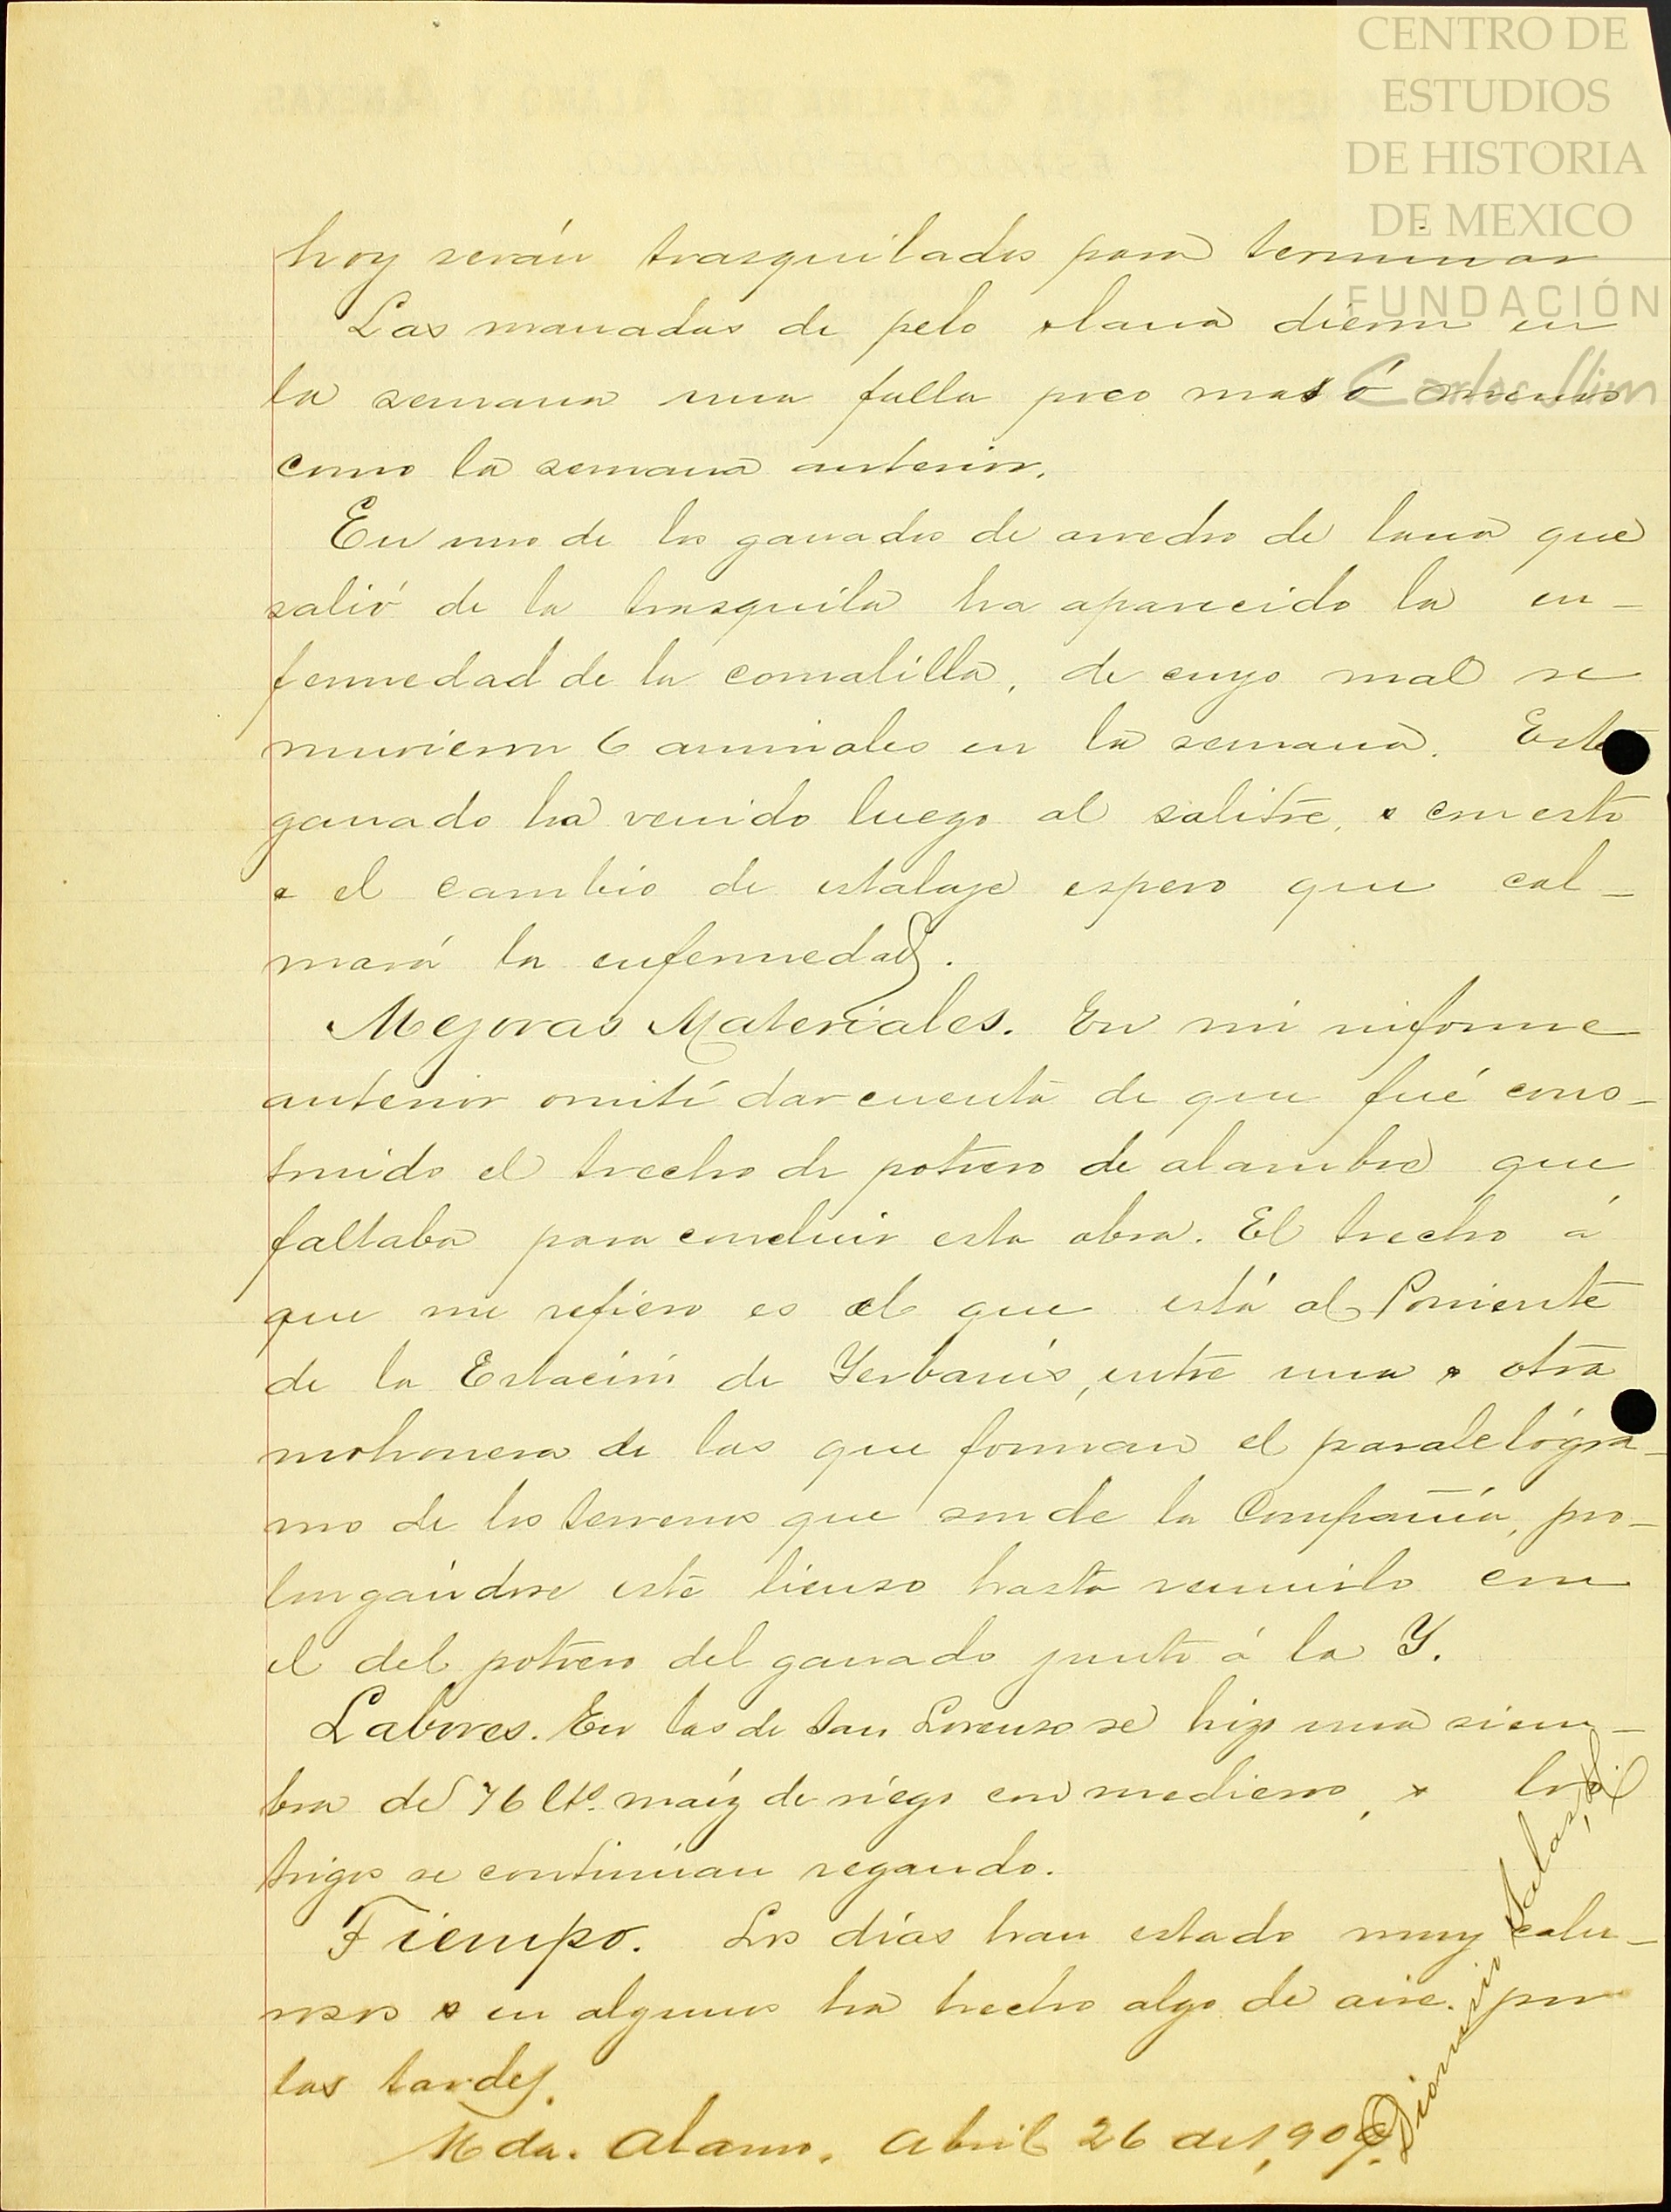 CENTRO DE
ESTUDIOS
DE HISTORIA
DE MEXICO
FUNDACIÓN
Carlos Slim
hoy serán trasquilados para terminar
Las manadas de pelo y lana dieron en
la semana una falla poco mas ó menos
como la semana anterior.
En uno de los ganados de arredro de lana que
salió de la trasquila ha aparecido la en-
fermedad de la comalilla, de cuyo mal se
murieron 6 animales en la semana. Este
ganado ha venido luego al salitre, y con esto
y el cambio de estalage espero que cal-
mará la enfermedad.
Mejoras Materiales. En mi informe
anterior omití dar cuenta de que fué cons-
truido el trecho de potrero de alambre que
faltaba para concluir esta obra. El trecho á
que me refiero es el que está al Poniente
de la Estación de Yerbanís, entre una y otra
mohonera de las que forman el paralelógra-
mo de los terrenos que son de la Compañía, pro-
longándose este lienso hasta reunirlo con
el del potrero del ganado junto á la Y.
Labores. En las de San Lorenzo se hizo una siem-
bra de 76 lts. maíz de riego con mediero, y los
trigos se continúan regando.
Tiempo. Los días han estado muy calu-
rosos y en algunos ha hecho algo de aire por
las tardes.
Hda. Alamo, Abril 26 de 1,909.
Dionisio Salas